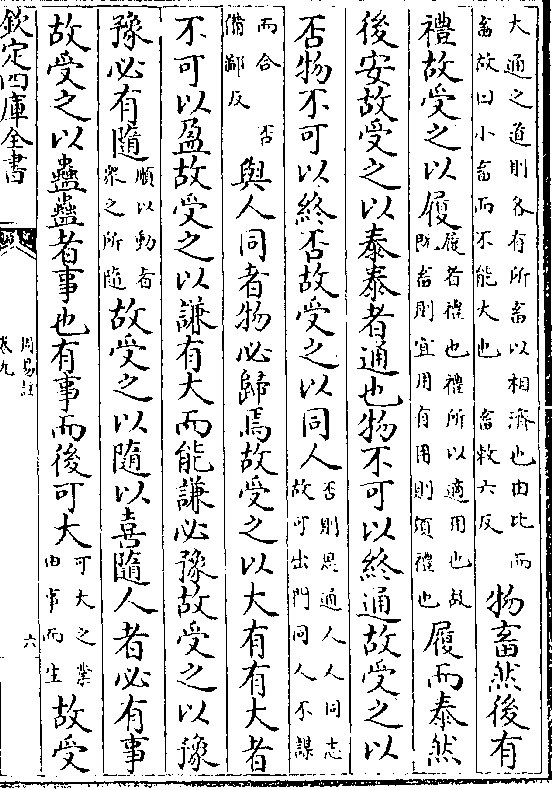 大通之道則各有所畜以相濟也由比而
畜故曰小畜而不能大也　畜敕六反
物畜然後有
禮故受之以履
履者禮也禮所以適用也故
既畜則宜用有用則須禮也
履而泰然
後安故受之以泰泰者通也物不可以終通故受之以
否物不可以終否故受之以同人
否則思通人人同志
故可出門同人不謀
而合　否
備鄙反
與人同者物必歸焉故受之以大有有大者
不可以盈故受之以謙有大而能謙必豫故受之以豫
豫必有隨
順以動者
衆之所隨
故受之以隨以喜隨人者必有事
故受之以蠱蠱者事也有事而後可大
可大之業
由事而生
故受
欽定四庫全書
周易註
卷九
六